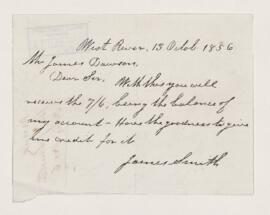 West River, 13 Octob 1836
Mr James Dawson,
Dear Sir. With this you will
receive the 7/6, being the balance of
my account - Have the goodness to give
me credit for it
James Smith